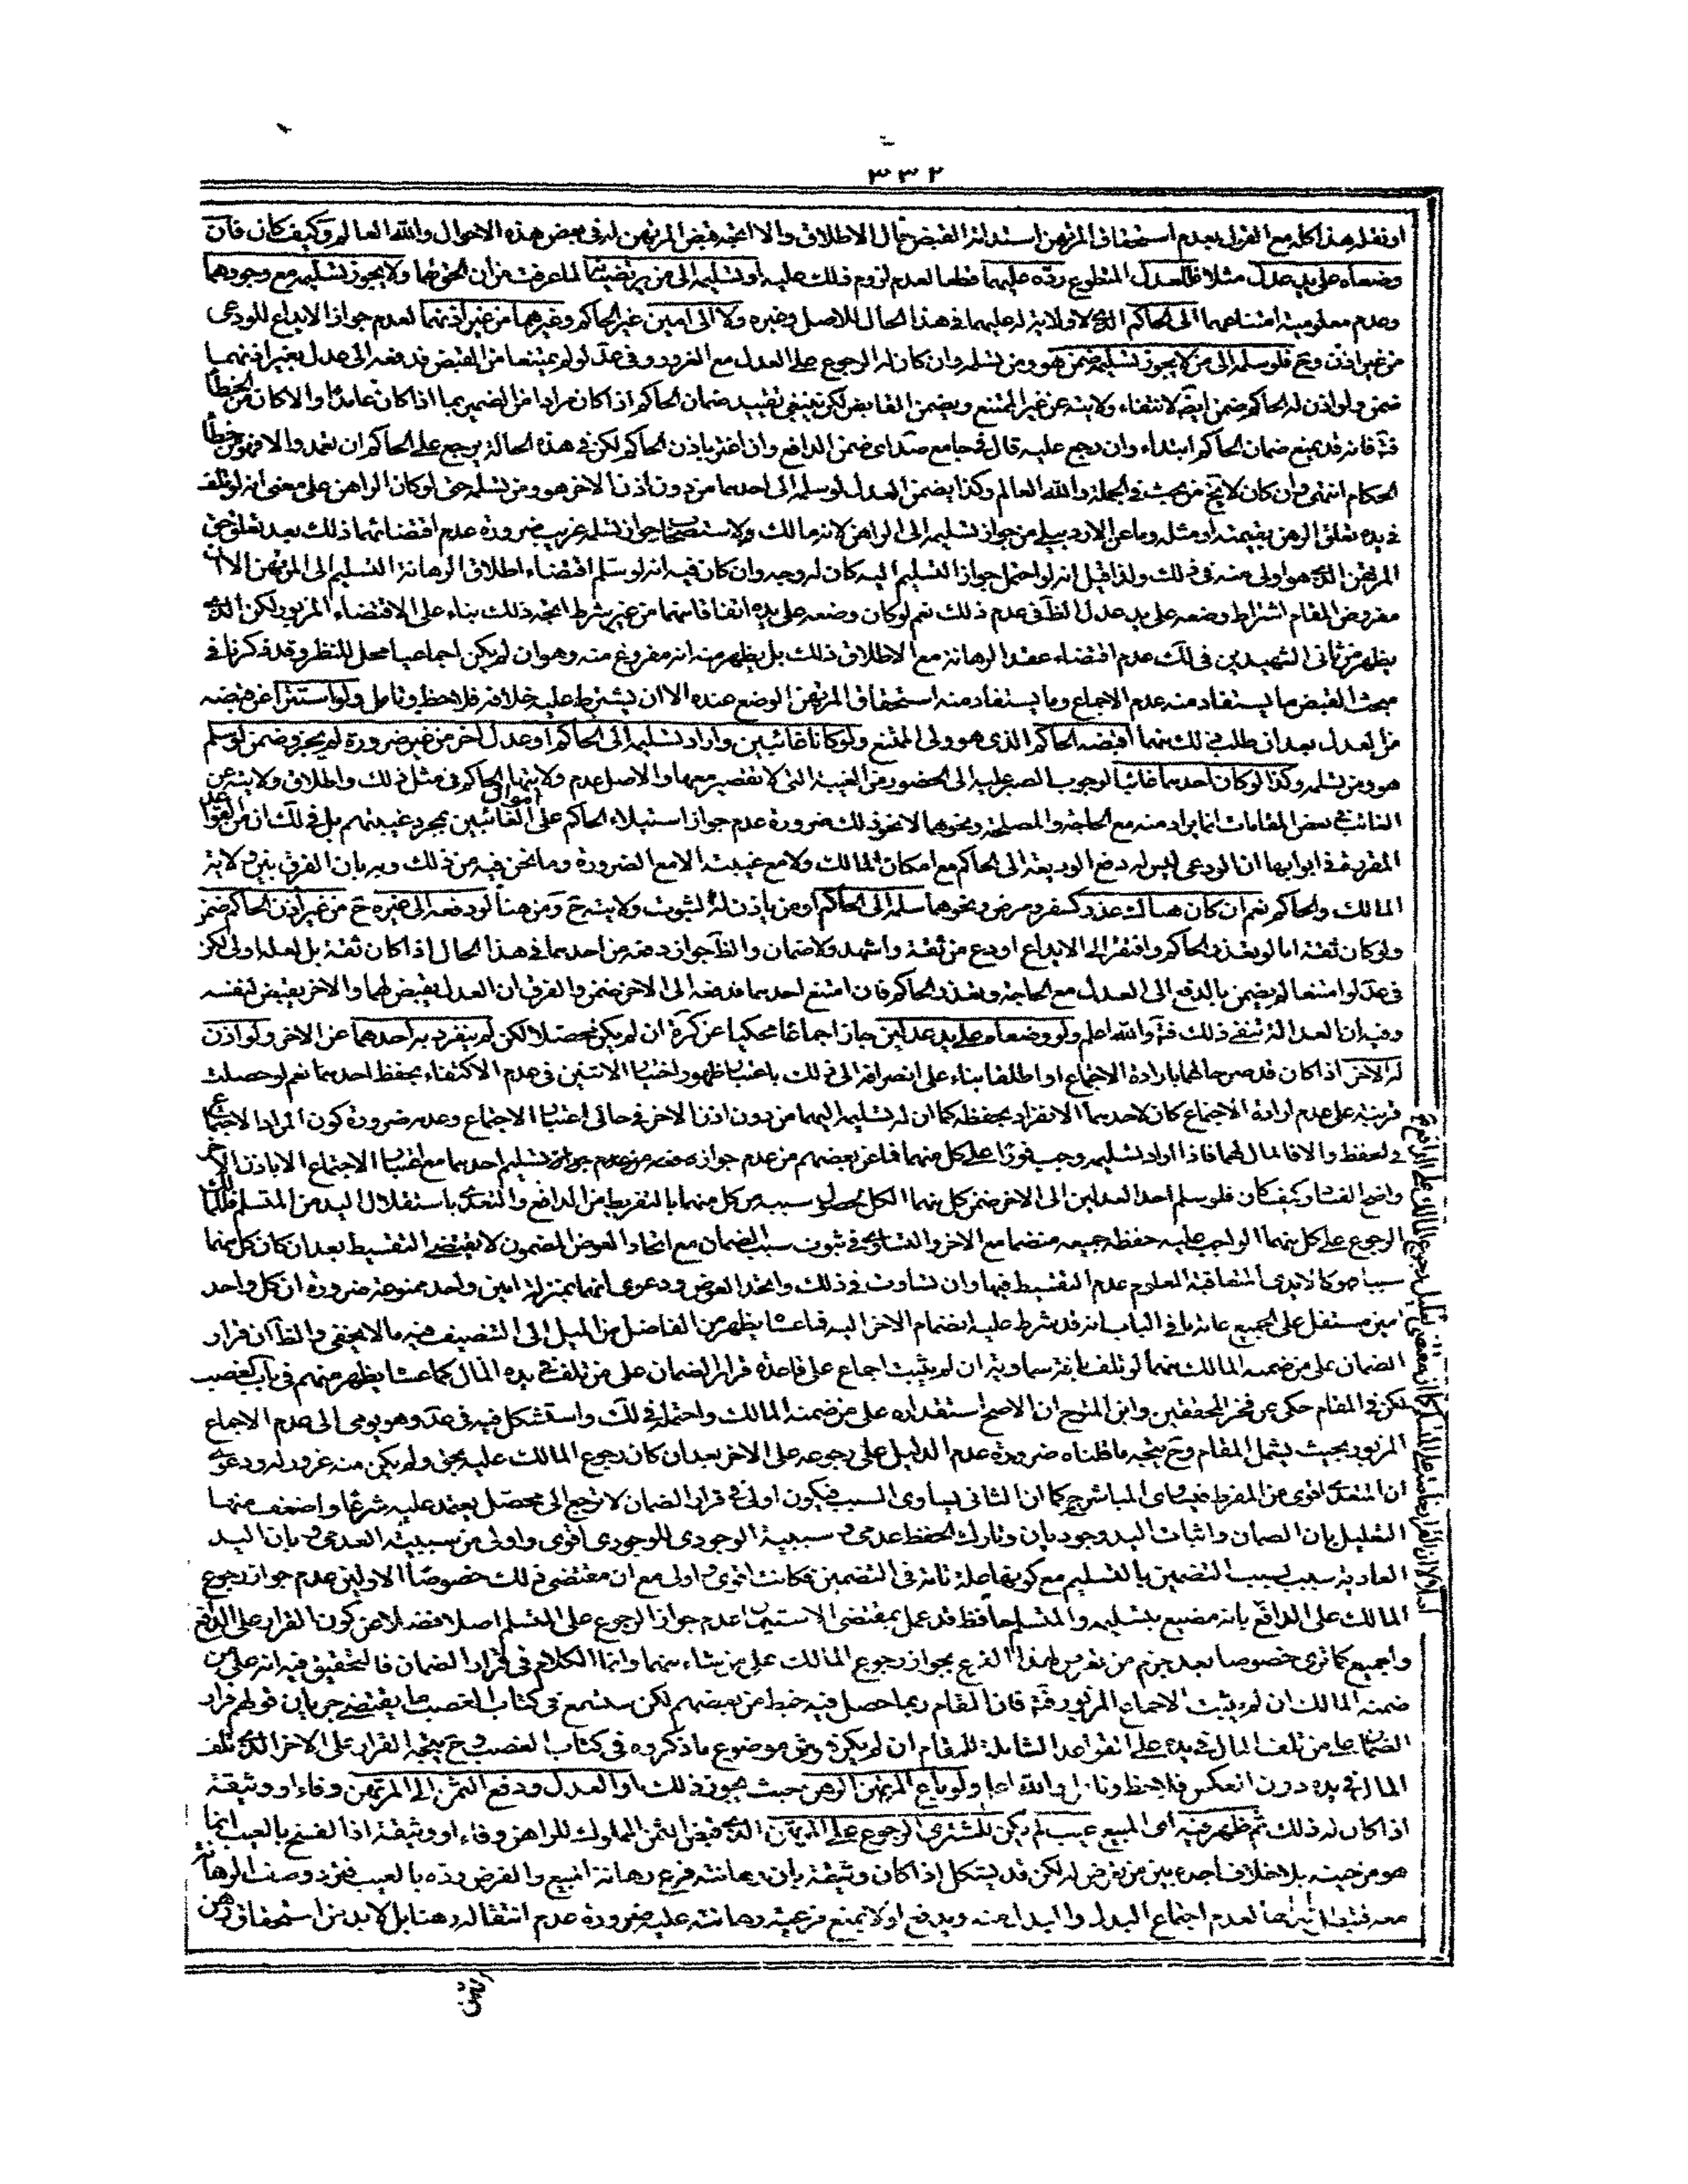 ٣٣٢
او نقله هذا كله مع القول بعدم استحقاق المرتهن استدامة القبض حال الاطلاق والا اتجه قبض المرتهن له فى بعض هذه الاحوال والله العالم وكيف كان فان
وضعاه على يد عدل مثلا فللعدل المتطوع رده عليهما قطعا لعدم لزوم ذلك عليه او تسليمه الى من يرتضيانه لما عرفت من ان الحق لهما ولا يجوز تسليمه مع وجودهما
وعدم معلومية امتناعهما الى الحاكم الذى لا ولاية له عليهما فى هذا الحال للاصل وغيره ولا الى امين غير الحاكم وغيرهما من غير اذنهما لعدم جواز الايداع للودعى
من غير اذن وح فلو سلمه الى من لا يجوز تسليمه ضمن هو ومن تسلمه وان كان له الرجوع على العدل مع الغرور وفى عد لو لم يمتنعا من القبض فدفعه الى عدل بغير اذنهما
ضمن ولو اذن له الحاكم ضمن ايضا لانتفاء ولايته عن غير الممتنع ويضمن القابض لكن ينبغى تقييد ضمان الحاكم اذا كان مرادا من الضمير بما اذا كان عامدا والا كان من الخطأ
فتأ فانه قد يمنع ضمان الحاكم ابتداء وان رجع عليه قال فى جامع صد اى ضمن الدافع وان اغتر باذن الحاكم لكن فى هذه الحالة يرجع على الحاكم ان تعمد والا فهو من خطأ
الحكام انتهى وان كان لا يخ من بحث فى الجملة والله العالم وكذا يضمن العدل لو سلمه الى احدهما من دون اذن الاخر هو ومن تسلمه حتى لو كان الراهن على معنى انه لو تلف
فى يده تعلق الرهن بقيمته او مثله وما عن الاردبيلى من جواز تسليمه الى الراهن لانه مالك ولاستصحاب جواز تسلمه غريب ضرورة عدم اقتضائهما ذلك بعد تعلق حق
المرتهن الذى هو اولى منه فى ذلك ولذا قيل انه لو احتمل جواز التسليم اليه كان له وجه وان كان فيه انه لو سلم اقتضاء اطلاق الرهانة التسليم الى المرتهن الا ان
مفروض المقام اشتراط وضعه على يد عدل الظ فى عدم ذلك نعم لو كان وضعه على يده اتفاقا منهما من غير شرط اتجه ذلك بناء على الاقتضاء المزبور لكن الذى
يظهر من ثانى الشهيدين فى لك عدم اقتضاء عقد الرهانة مع الاطلاق ذلك بل يظهر منه انه مفروغ منه وهو ان لم يكن اجماعيا محل للنظر وقد ذكرنا فى
مبحث القبض ما يستفاد منه عدم الاجماع وما يستفاد منه استحقاق المرتهن الوضع عنده الا ان يشترط عليه خلافه فلاحظ وتامل ولو استترا عن قبضه
من العدل بعد ان طلب ذلك منهما اقبضه الحاكم الذى هو ولى الممتنع ولو كانا غائبين واراد تسليمه الى الحاكم او عدل اخر من غير ضرورة لم يجز وضمن لو سلم
هو ومن تسلمه وكذا لو كان احدهما غائبا لوجوب الصبر عليه الى الحضور من الغيبة التى لا تقصير معها والاصل عدم ولاية الحاكم فى مثل ذلك واطلاق ولايته عن
الغائب فى بعض المقامات انما يراد منه مع الحاجة والمصلحة ونحوهما لا نحو ذلك ضرورة عدم جواز استيلاء الحاكم على اموال الغائبين بمجرد غيبتهم بل فى لك ان من القواعد
المقررة فى ابوابها ان الودعى ليس له دفع الوديعة الى الحاكم مع امكان المالك ولا مع غيبته الا مع الضرورة وما نحن فيه من ذلك وبه بان الفرق بين ولاية
المالك والحاكم نعم ان كان هناك عذر كسفر ومرض ونحوهما سلمه الى الحاكم او من ياذن له لثبوت ولايته ح ومن هنا لو دفعه الى غيره ح من غير اذن الحاكم ضمن
ولو كان ثقة اما لو تعذر الحاكم وافتقر الى الايداع اودع من ثقة واشهد ولا ضمان والظ جواز دفعه من احدهما فى هذا الحال اذا كان ثقة بل لعله اولى لكن
فى عد لو امتنعا لم يضمن بالدفع الى العدل مع الحاجة وتعذر الحاكم فان امتنع احدهما فدفعه الى الاخر ضمن والفرق ان العدل يقبض لهما والاخر يقبض لنفسه
وفيه ان العدالة تنفى ذلك فتأ والله اعلم ولو وضعاه على يد عدلين جاز اجماعا محكيا عن كرة ان لم يكن محصلا لكن لم ينفرد به احدهما عن الاخر ولو اذن
له الاخر اذا كان قد صرحا لهما بارادة الاجتماع او اطلقا بناء على انصرافه الى ذلك باعتبار ظهور اختيار الاثنين فى عدم الاكتفاء بحفظ احدهما نعم لو حصلت
قرينة على عدم ارادة الاجتماع كان لاحدهما الانفراد بحفظه كما ان له تسليمه اليهما من دون اذن الاخر فى حالى اعتبار الاجتماع وعدمه ضرورة كون المراد الاجتماع
فى الحفظ والا فالمال لهما فاذا اراد تسليمه وجب فورا على كل منهما فما عن بعضهم من عدم جواز تسليم احدهما مع اعتبار الاجتماع الا باذن الاخر
واضح الفساد وكيف كان فلو سلم احد العدلين الى الاخر ضمن كل منهما الكل لحصول سببه من كل منهما بالتفريط من الدافع والتعدى باستقلال اليد من المتسلم فللمالك
الرجوع على كل منهما الواجب عليه حفظه جميعه منضما مع الاخر والتساوى فى ثبوت سبب الضمان مع اتحاد العوض المضمون لا يقتضى التقسيط بعد ان كان كل منهما
سببا هو كالايدى المتعاقبة المعلوم عدم التقسيط فيها وان تساوت فى ذلك واتحد العوض ودعوى انهما بمنزلة امين واحد ممنوعة ضرورة ان كل واحد
امين مستقل على الجميع غاية ما فى الباب انه قد شرط عليه انضمام الاخر اليه فما عساه يظهر من الفاضل من الميل الى التنصيف فيه ما لا يخفى والظ ان قرار
الضمان على من ضمنه المالك منهما لو تلف بافة سماوية ان لم يثبت اجماع على قاعدة قرار الضمان على من تلف فى يده المال كما عساه يظهر منهم فى باب الغصب
لكن فى المقام حكى عن فخر المحققين وابن المتوج ان الاصح استقراره على من ضمنه المالك واحتمله فى لك واستشكل فيه فى عد وهو يومى الى عدم الاجماع
المزبور بحيث يشمل المقام وح يتجه ما قلناه ضرورة عدم الدليل على رجوعه على الاخر بعد ان كان رجوع المالك عليه بحق ولم يكن منه غرور له ودعوى
ان المتعدى اقوى من المفرط كما ان الثانى يساوى السبب فيكون اولى فى قرار الضمان لا ترجع الى محصل يعتمد عليه شرعا واضعف منها
التعليل بان الضمان واثبات اليد وجوديان وتارك الحفظ عدمى وسببية الوجودى للوجودى اقوى واولى من سببية العدمى وبان اليد
العادية سبب لسبب التضمين بالتسليم مع كونها علة تامة فى التضمين فكانت اقوى واولى مع ان مقتضى ذلك خصوصا الاولين عدم جواز رجوع
المالك على الدافع بانه مضيع بتسليمه والمتسلم حافظ قد عمل بمقتضى الاستيمان عدم جواز الرجوع على المتسلم اصلا فضلا عن كون القرار على الدافع
والجميع كما ترى خصوصا بعد جزم من تعرض لهذا الفرع بجواز رجوع المالك على من شاء منهما وانما الكلام فى قرار الضمان فالتحقيق فيه انه على من
ضمنه المالك ان لم يثبت الاجماع المزبور فتأ فان المقام ربما حصل فيه خبط من بعضهم لكن ستسمع فى كتاب الغصب ما يقتضى جريان قولهم قرار
الضمان على من تلف المال فى يده على القواعد الشاملة للمقام ان لم يكن موضوع ما ذكروه فى كتاب الغصب وح يتجه القرار على الاخر الذى تلف
المال فى يده دون العكس فلاحظ وتامل والله اعلم ولو باع المرتهن الرهن حيث يجوز ذلك او العدل ودفع الثمن الى المرتهن وفاء او وثيقة
اذا كان له ذلك ثم ظهر فيه اى المبيع عيب لم يكن للمشترى الرجوع على المرتهن الذى قبض الثمن المملوك للراهن وفاء او وثيقة اذا الفسخ بالعيب انما
هو من حينه بلا خلاف اجده بين من تعرض له لكن قد يشكل اذا كان وثيقة بان رهانته فرع رهانة المبيع والفرض رده بالعيب فترد وصف الرهانة
معه فتبطل لعدم اجتماع البدل والمبدل عنه ويدفع اولا بمنع فرعية رهانته عليه ضرورة عدم انتقاله رهنا بل لا بد من استحقاق رهن